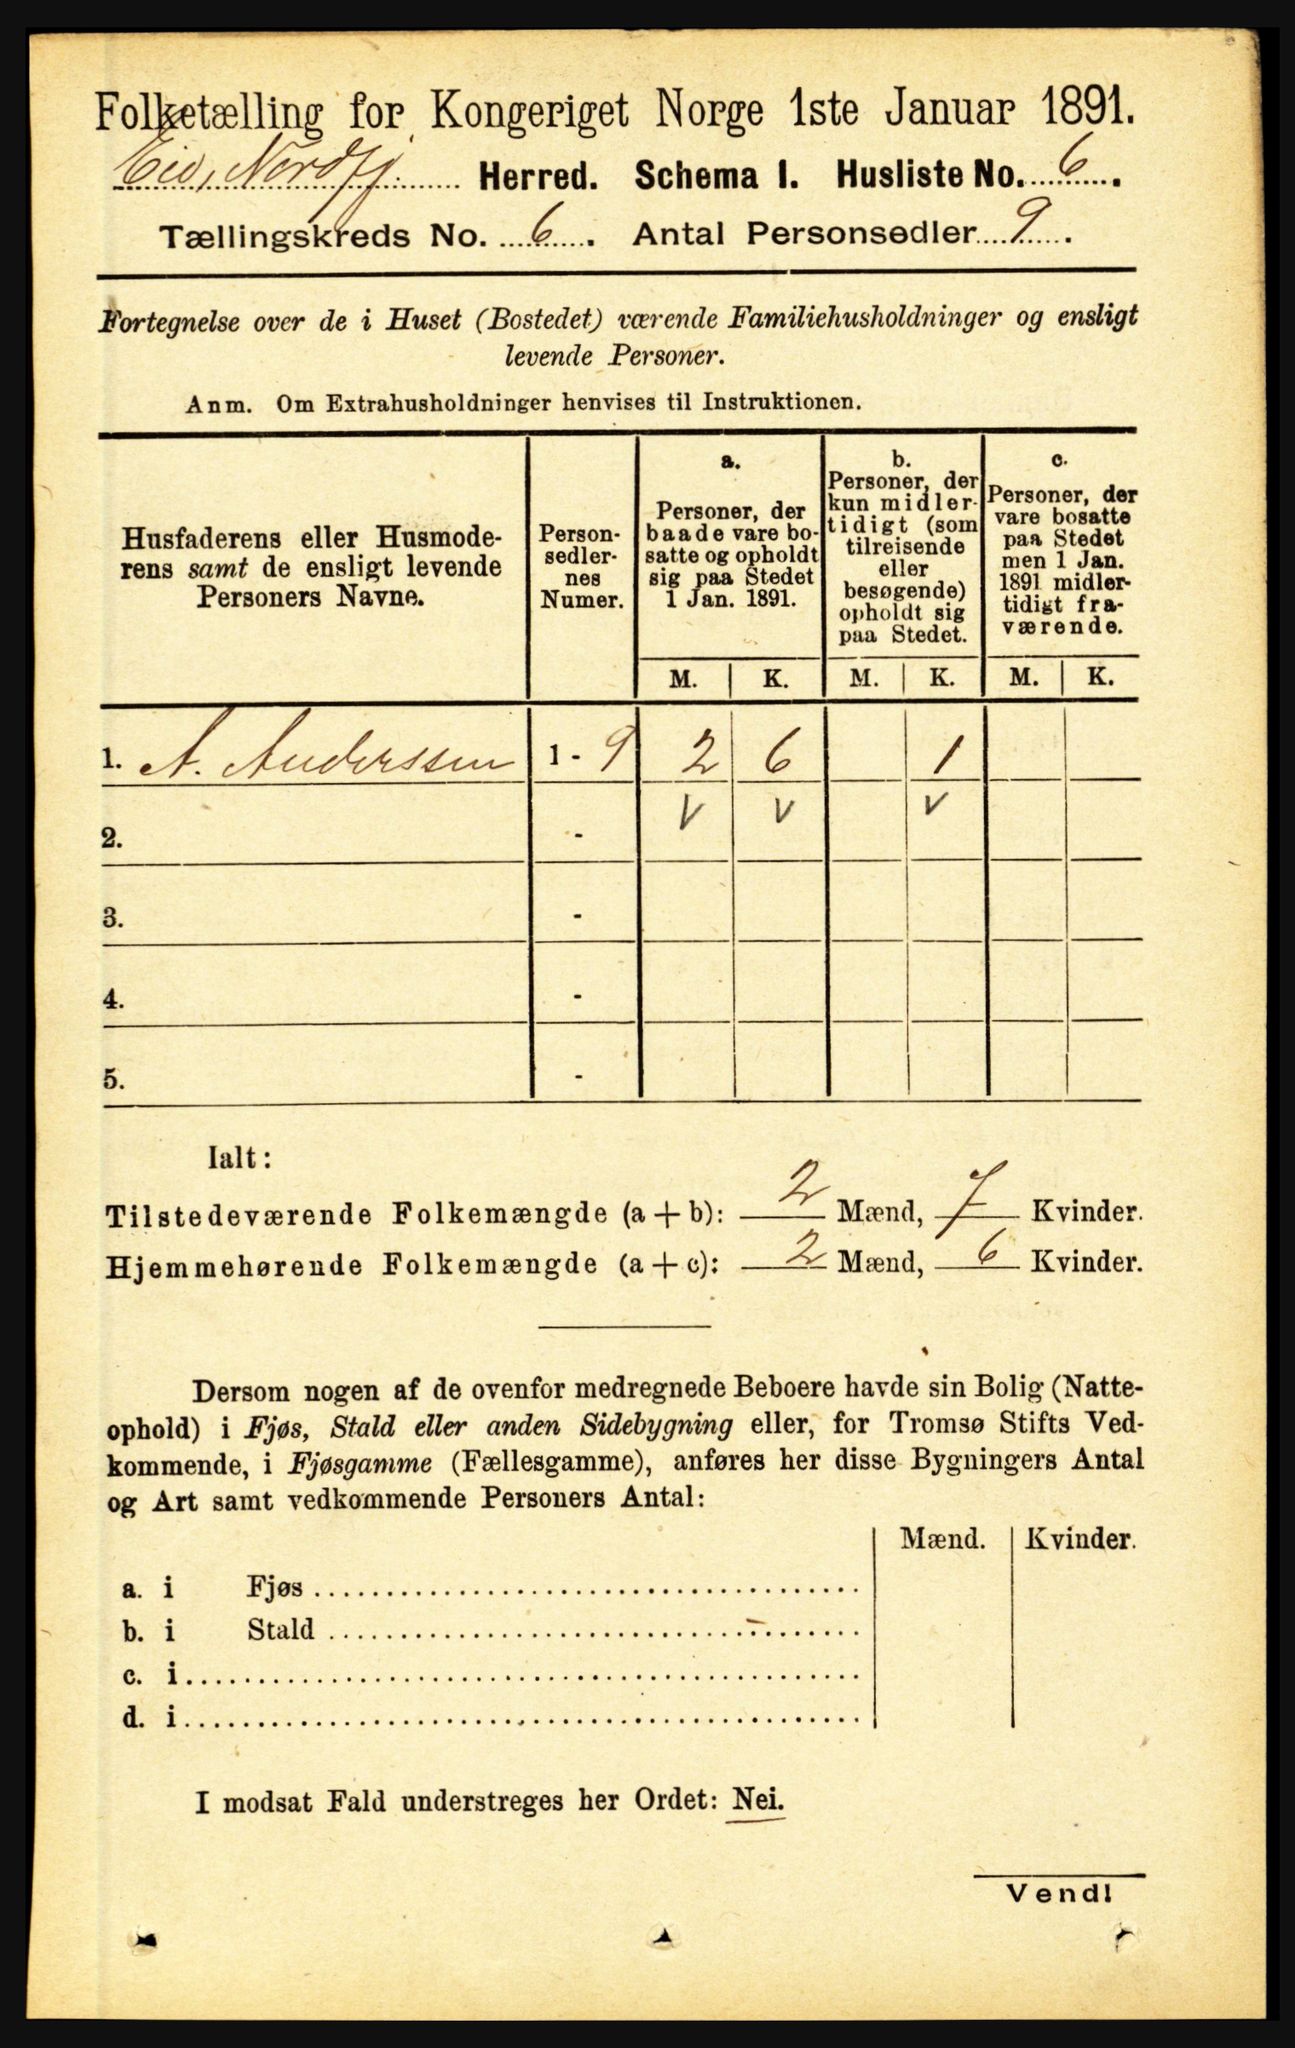 Folketælling for Kongeriget Norge 1ste Januar 1891.
Eid, Nordfj. Herred. Schema I. Husliste No. 6.
Tællingskreds No. 6. Antal Personsedler 9.
Fortegnelse over de i Huset (Bostedet) værende Familiehusholdninger og ensligt
levende Personer.
Anm. Om Extrahusholdninger henvises til Instruktionen.
Husfaderens eller Husmode-
rens samt de ensligt levende
Personers Navne.
Person-
sedler-
nes
Numer.
a.
Personer, der
baade vare bo-
satte og opholdt
sig paa Stedet
1 Jan. 1891.
b.
Personer, der
kun midler-
tidigt (som
tilreisende
eller
besøgende)
opholdt sig
paa Stedet.
c.
Personer, der
vare bosatte
paa Stedet
men 1 Jan.
1891 midler-
tidigt fra-
værende.
M. K. M. K. M. K.
1. A. Anderssen 1 - 9 2 6 1
2. - V V V
3. -
4. -
5. -
Ialt:
Tilstedeværende Folkemængde (a + b): 2 Mænd, 7 Kvinder.
Hjemmehørende Folkemængde (a + c): 2 Mænd, 6 Kvinder.
Dersom nogen af de ovenfor medregnede Beboere havde sin Bolig (Natte-
ophold) i Fjøs, Stald eller anden Sidebygning eller, for Tromsø Stifts Ved-
kommende, i Fjøsgamme (Fællesgamme), anføres her disse Bygningers Antal
og Art samt vedkommende Personers Antal:
Mænd. Kvinder.
a. i Fjøs
b. i Stald
c. i
d. i
I modsat Fald understreges her Ordet: Nei.
Vend!